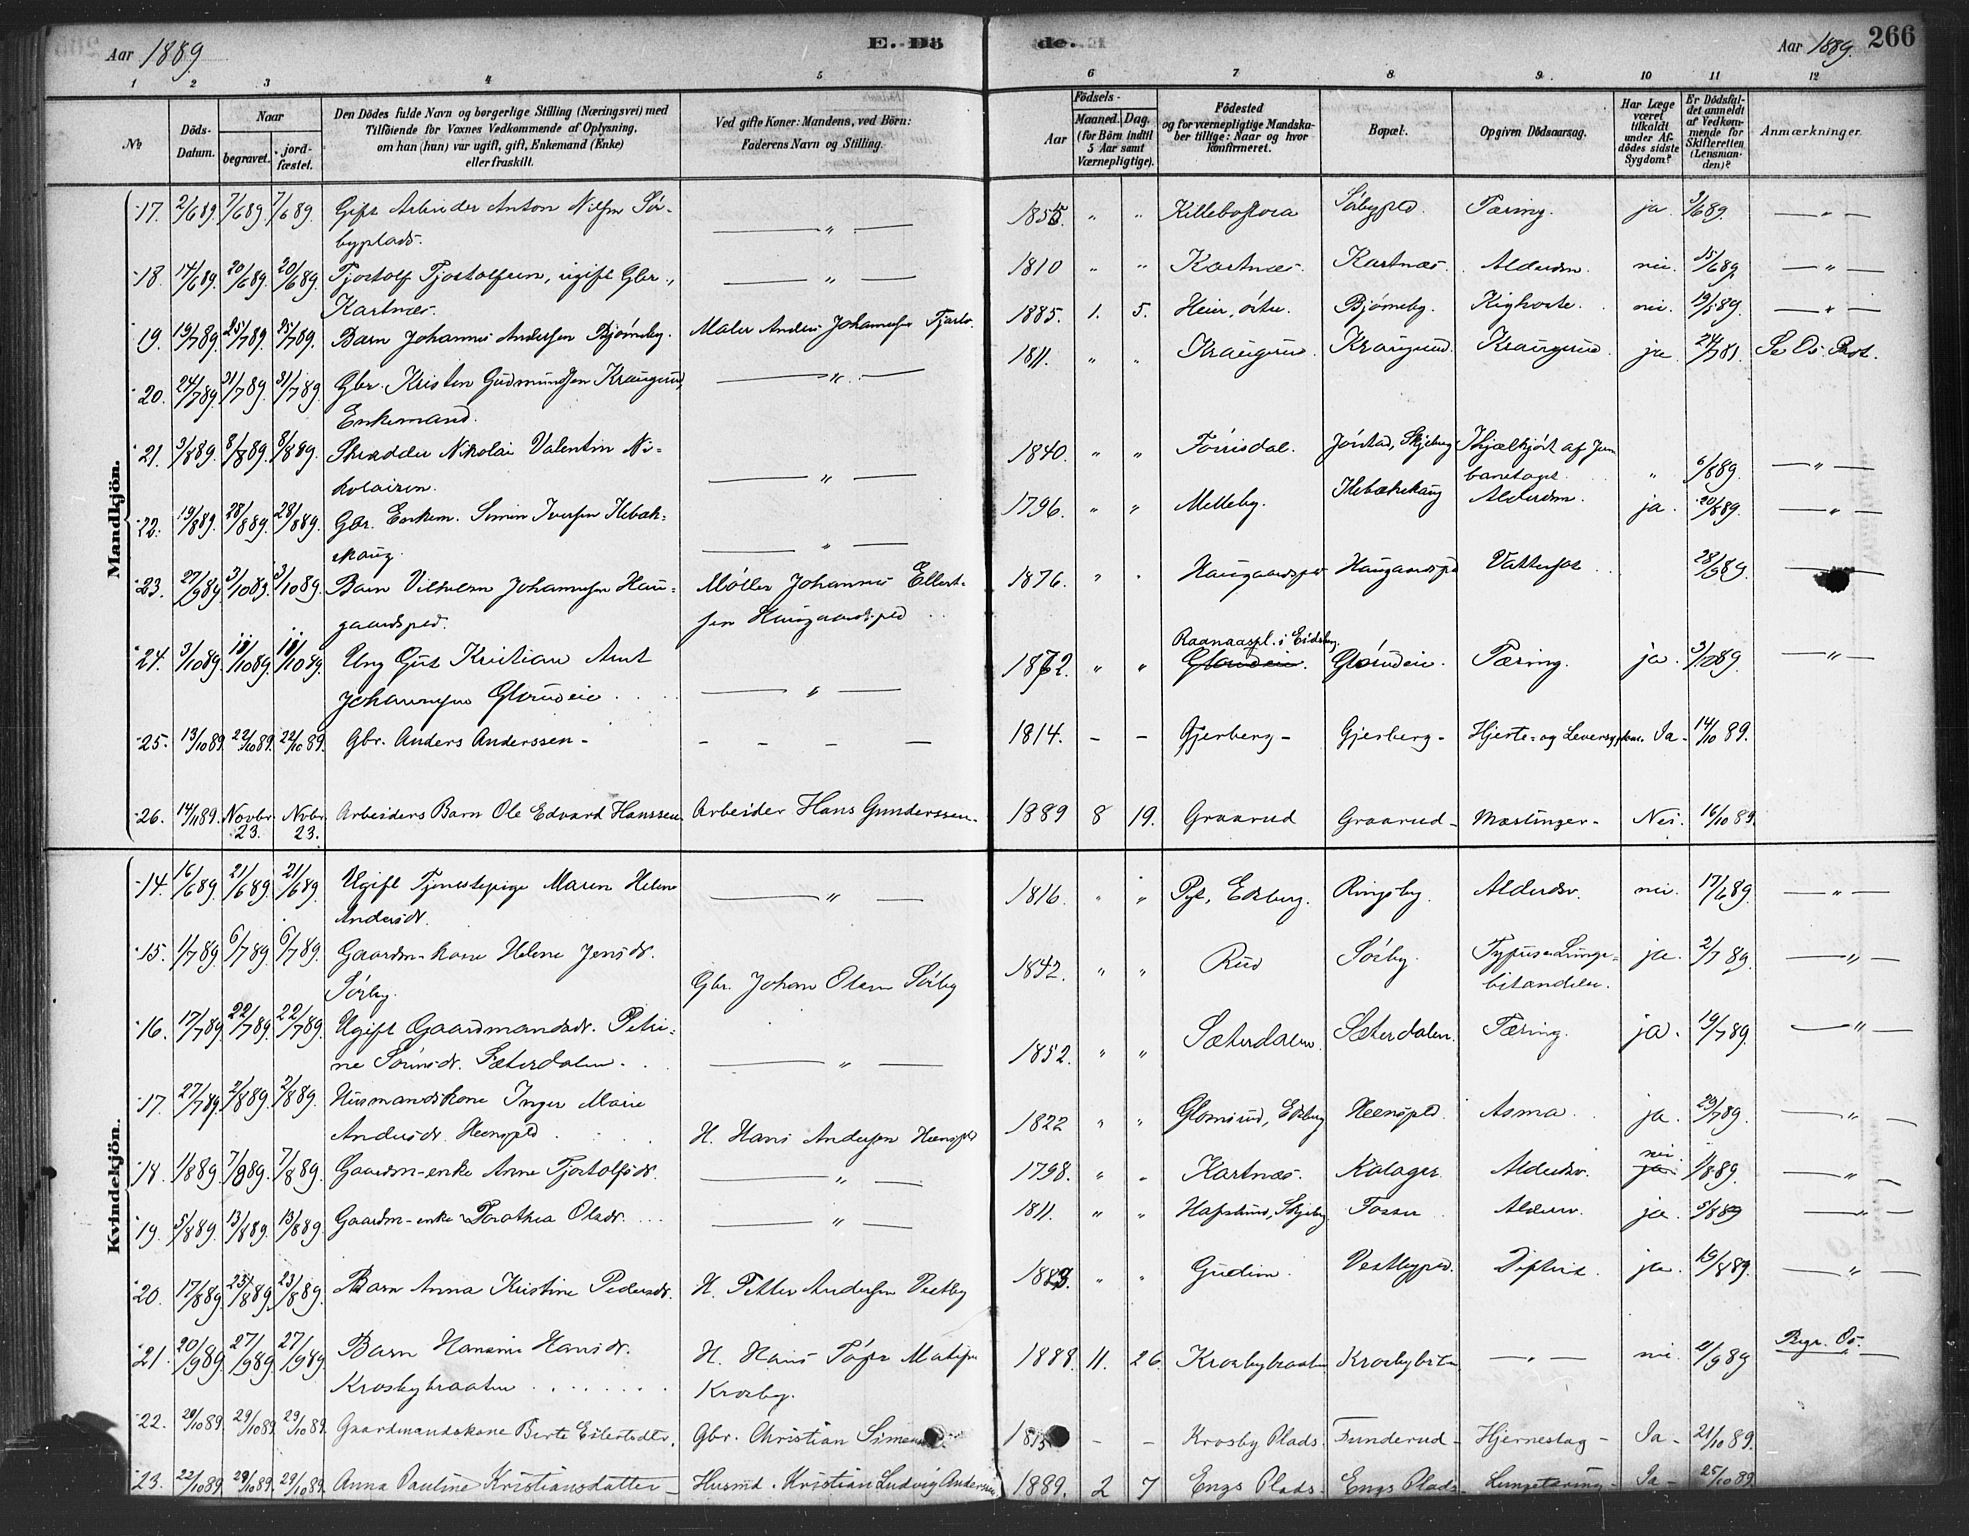 Aar 1889 E. Dö de. Aar 1889. 266
1 2 3 4 5 6 7 8. 9. 10 11 12
№ Döds-Datum. Naar begravet. jord-fæstet. Den Dödes fulde Navn og borgerlige Stilling (Næringsvei) med Tilföiende for Voxnes Vedkommende af Oplysning, om han (hun) var ugift, gift, Enkemand (Enke) eller fraskilt. Ved gifte Koner: Mandens, ved Börn: Faderens Navn og Stilling. Födsels- Aar Maaned. Dag. (for Börn indtil 5 Aar samt Værnepligtige). Födested og for værnepligtige Mandska-ber tillige: Naar og hvor konfirmeret. Bopæl. Opgiven Dödsaarsag. Har Læge været tilkaldt under Af-dödes sidste Sygdom? Er Dödsfal-det anmeldt af Vedkom-mende for Skifteretten (Lensman-den)? Anmærkninger.
Mandkjön.
17. 2/6 89. 7/6 89. 7/6 89. Gift Arbeider Anton Nilsen Sör-
byplads. — " — 1855 " " Killebostora Sörbypld. Tæring. ja. 3/6 89. — " —
18. 14/6 89. 20/6 89. 20/6 89. Tjostolf Tjostolfsen, ugift Gbr., — " — 1810 " " Kartnæs. Kartnæs. Aldersdm. nei. 15/6 89. — " —
Kartnæs.
19. 19/7 89. 25/7 89. 25/7 89. Barn Johannes Andersen Bjørneby. Maler Anders Johannesen 1885. 1. 5. Heier, östre. Bjørneby. Kighoste. nei. — " —
20. 24/7 89. 31/7 89. 31/7 89. Gbr. Kristen Gudmundsen Kraugerud, — " — 1811. " " Kraugerud. Kraugerud. ja.
Enkemand.
21. 3/8 89. 8/8 89. 8/8 89. Skrædder Nikolai Valentin Ni-
kolaisen. — " — 1840. " " Jörstad, Skjeberg Ihjælkjört af Jern
banetoget. " 6/8 89. — " —
22. 19/8 89. 28/8 89. 28/8 89. Gbr. Enkem. Simen Iversen Ilebæk-
skaug. — " — 1796. " " Melleby. Ilebækskaug Aldersdm. ja. 20/8 89. — " —
23. 27/9 89. 3/10 89. 3/10 89. Barn Vilhelm Johannesen Hau-
gaardspld. Møller Johannes Ellert-
sen Haugaardspld 1876. " " Haugaardspld Haugaardspld Vattersot 28/9 89.
24. 3/10 89. 10/10 89. 10/10 89. Ung Gut Kristian Amt
Johannesen Glorudeie — " — 1872 " " Raanaaspl. i Eidsberg
Glorudeie. Glorudeie. Tæring. ja. 3/10 89. — " —
25. 13/10 89. 22/10 89. 22/10 89. Gbr. Anders Anderssen - - - - - 1814. - - Gjerberg - Gjerberg - Hjerte- og Leversygdom. Ja - 14/10 89.
26. 14/11 89. Novbr 23. Nvbr 23. Arbeiders Barn Ole Edvard Hanssen. Arbeider Hans Gunderssen. 1889 8 19. Graarud Graarud - Mæslinger - Nei. 16/10 89.
Kvindekjön.
14. 16/6 89. 21/6 89. 21/6 89. Ugift Tjenestepige Maren Helene
Andersdr. — " — 1816. " " Ringsby. Aldersdv. nei. 17/6 89. — " —
15. 1/7 89. 6/7 89. 6/7 89. Gaardm-kone Helene Jensdr.
Sörby. Gbr. Johan Olsen Sörby 1842. " " Rud Sörby. Typus Lunge-
betændelse. ja. 2/7 89. — " —
16. 17/7 89. 22/7 89. 22/7 89. Ugift Gaardmandsdr. Petri-
ne Sörensdr. Sæterdalen. — " — 1852. " " Sæterdalen. Sæterdalen. Tæring. ja. 19/7 89. — " —
17. 27/7 89. 2/8 89. 2/8 89. Husmandskone Inger Marie
Andersdr. Heenspld. H. Hans Andersen Heenspld 1822 " " Glomsrud, Edsberg Heenspld. Asma ja. 29/7 89. — " —
18. 1/8 89. 7/8 89. 7/8 89. Gaardm-enke Anne Tjostolfsdr. — " — 1798. " " Kartnæs. Kolager Aldersdv. nei. ja. 1/8 89. — " —
19. 5/8 89. 13/8 89. 13/8 89. Gaardm-enke Dorothea Olsdr. — " — 1811. " " Hafslund, Skjeberg Fosser ja. 5/8 89 — " —
20. 17/8 89. 23/8 89. 23/8 89. Barn Anna Kristine Pedersdr. H. Petter Andersen Vestby 1883. " " Gudim. Vestbypld. ja. 19/8 89. — " —
21. 20/9 89. 27/9 89. 27/9 89. Barn Hansine Hansdr.
Krosbybraaten H. Hans
Krosby. 1888. 11. 26. Krosbybraaten Krosbybrtn — " — nei. 21/9 89 Begr. Os.
22. 20/10 89. 29/10 89. 29/10 89. Gaardmandskone Berte Eilertsdtr. Gbr. Christian - - Krosby Plads. Funderud - Hjerneslag - Ja - 21/10 89.
23. 22/10 89. 29/10 89. 29/10 89. Anna Pauline Kristiansdatter - Husmd. Kristian Ludvig Anderssen 1889. 2 7 Engs Plads - Engs Plads - Lungetæring - Ja - 25/10 89.